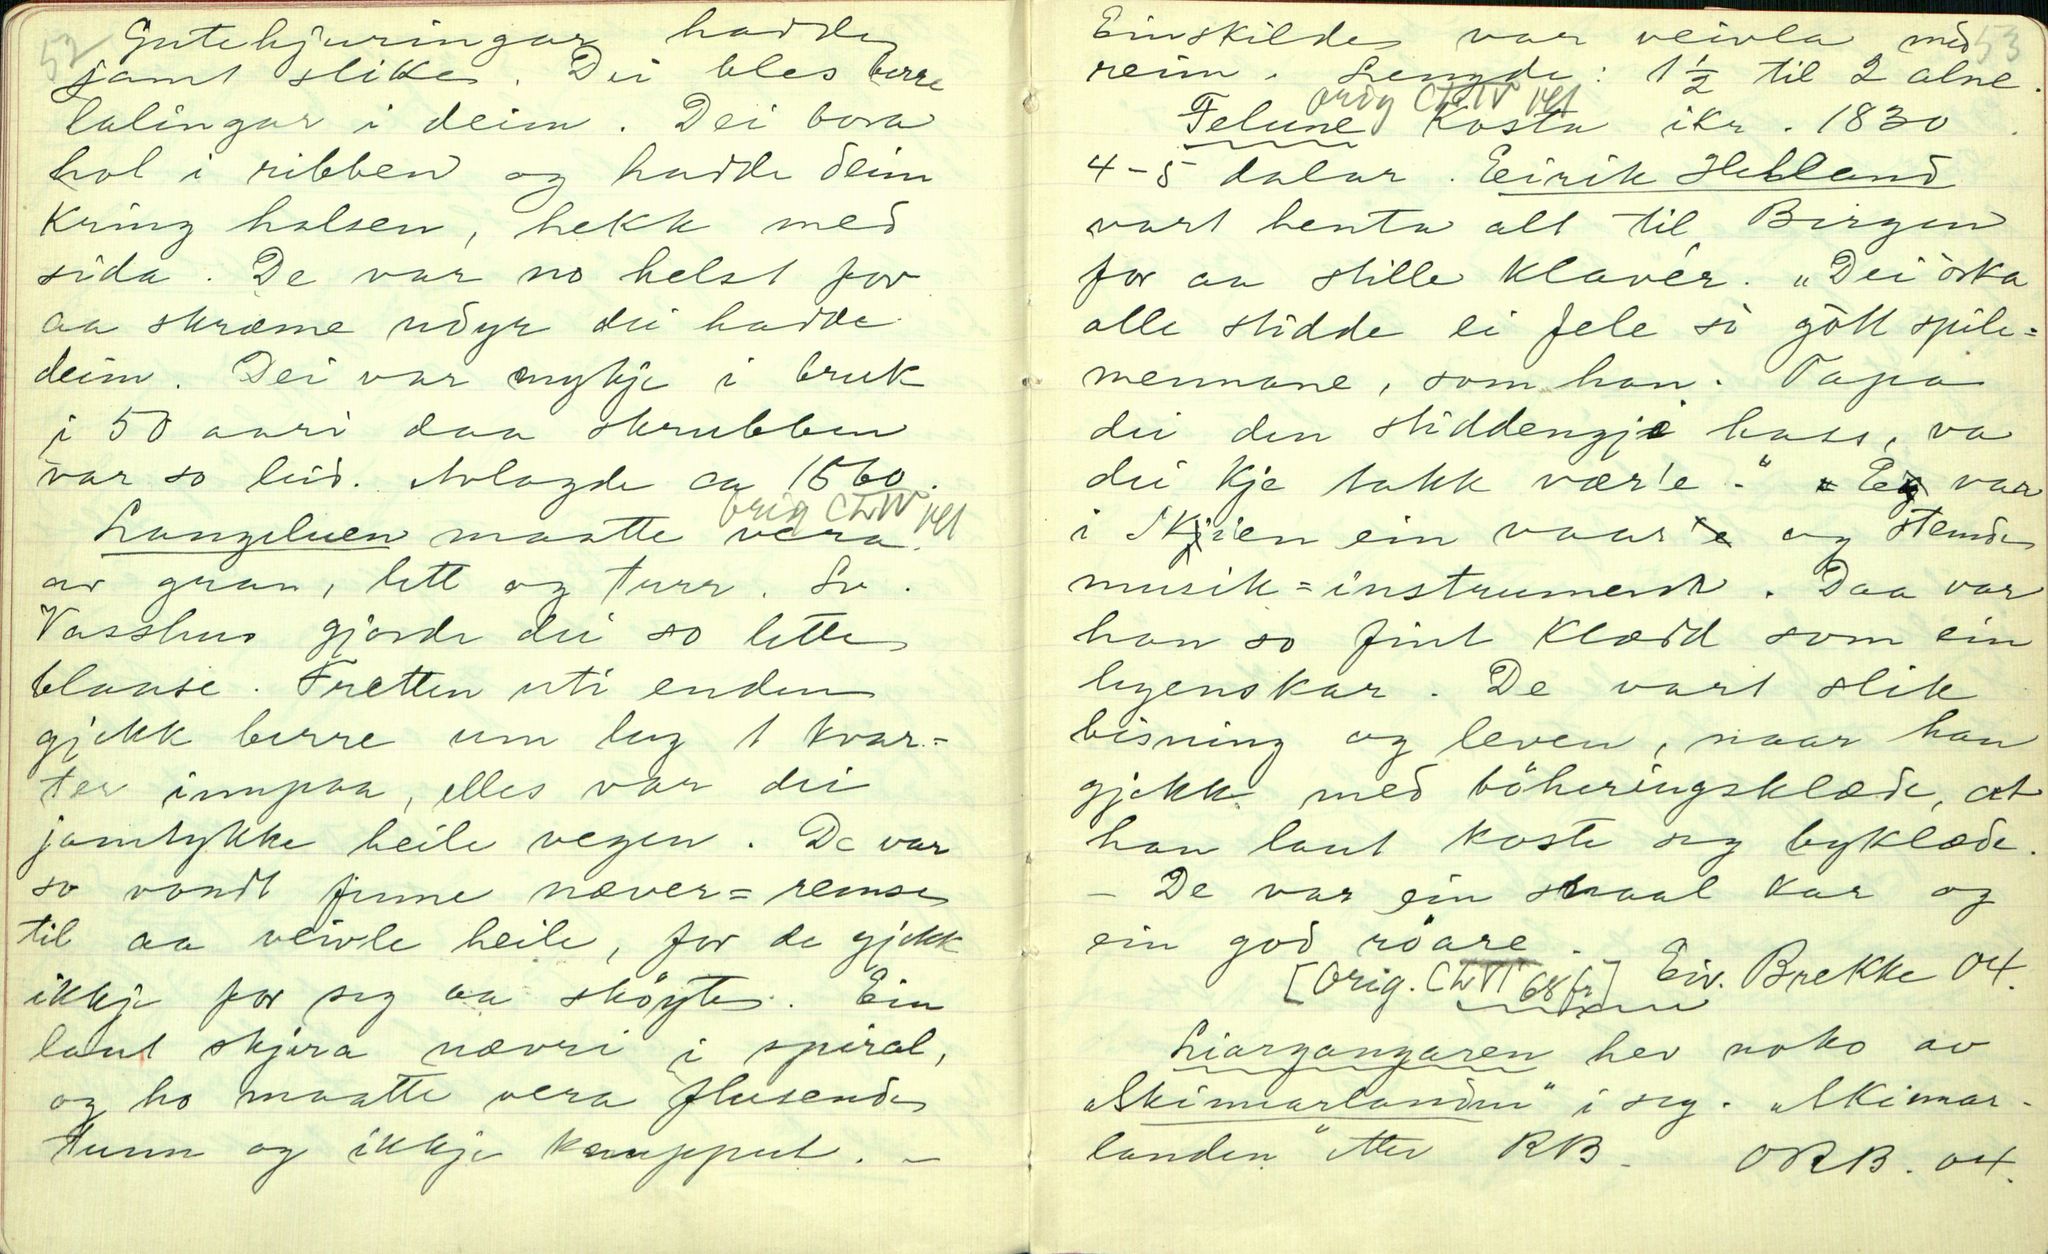 52
Gutehjuringar hadde
jamt slike. Dei bles berre
lalingar i deim. Dei bora
hol i ribben og hadde deim
kring halsen, hekk med
sida. De var no helst for
aa skræme udyr dei hadde
deim. Dei var mykje i bruk
i 50 aari daa skrubben
var so leid. Avlagde ca 1860.
orig
Langeluen maatte vera
av gran, lett og turr. So.
Vasshus gjorde dei so lette
blanse. Fretten uti enden
gjekk berre um lag 1 kvar=
ter innpaa, elles var dei
jamtykke heile vegen. De var
so vondt finne næver=remse
til aa veivle heile, for de gjekk
ikkje for seg aa sköyte. Ein
laut skjera nævri i spiral,
og ho maatte vera flusende
tunn og ikkje knupput. –
53
Einskilde var veivla med
reim. Lengde: 1½ til 2 alne.
orig
Felune kosta ikr. 1830
4-5 dalar. Eirik Helland
vart henta alt til Bergen
for aa stille klavér. "Dei örka
alle stidde ei fele so gött spile=
mennane, som han. Tapa
dei den stiddengje hass, va
dei kje takk vær'e." Eg var
i Skien ein vaar og stemde
musik=instrument. Daa var
han so fint klædd som ein
lygenskar. De vart slik
bisning og leven, naar han
gjekk med böheringsklæde, at
han laut koste seg byklæde.
– De var ein snaal kar og
ein god röare.
[Orig. Ch VI 68 fr] Eiv. Brekke 04.
Liargangaren hev noko av
"Skinnarlanden" i seg. "Skinnar-
landen" etter RB. ORB. 04.